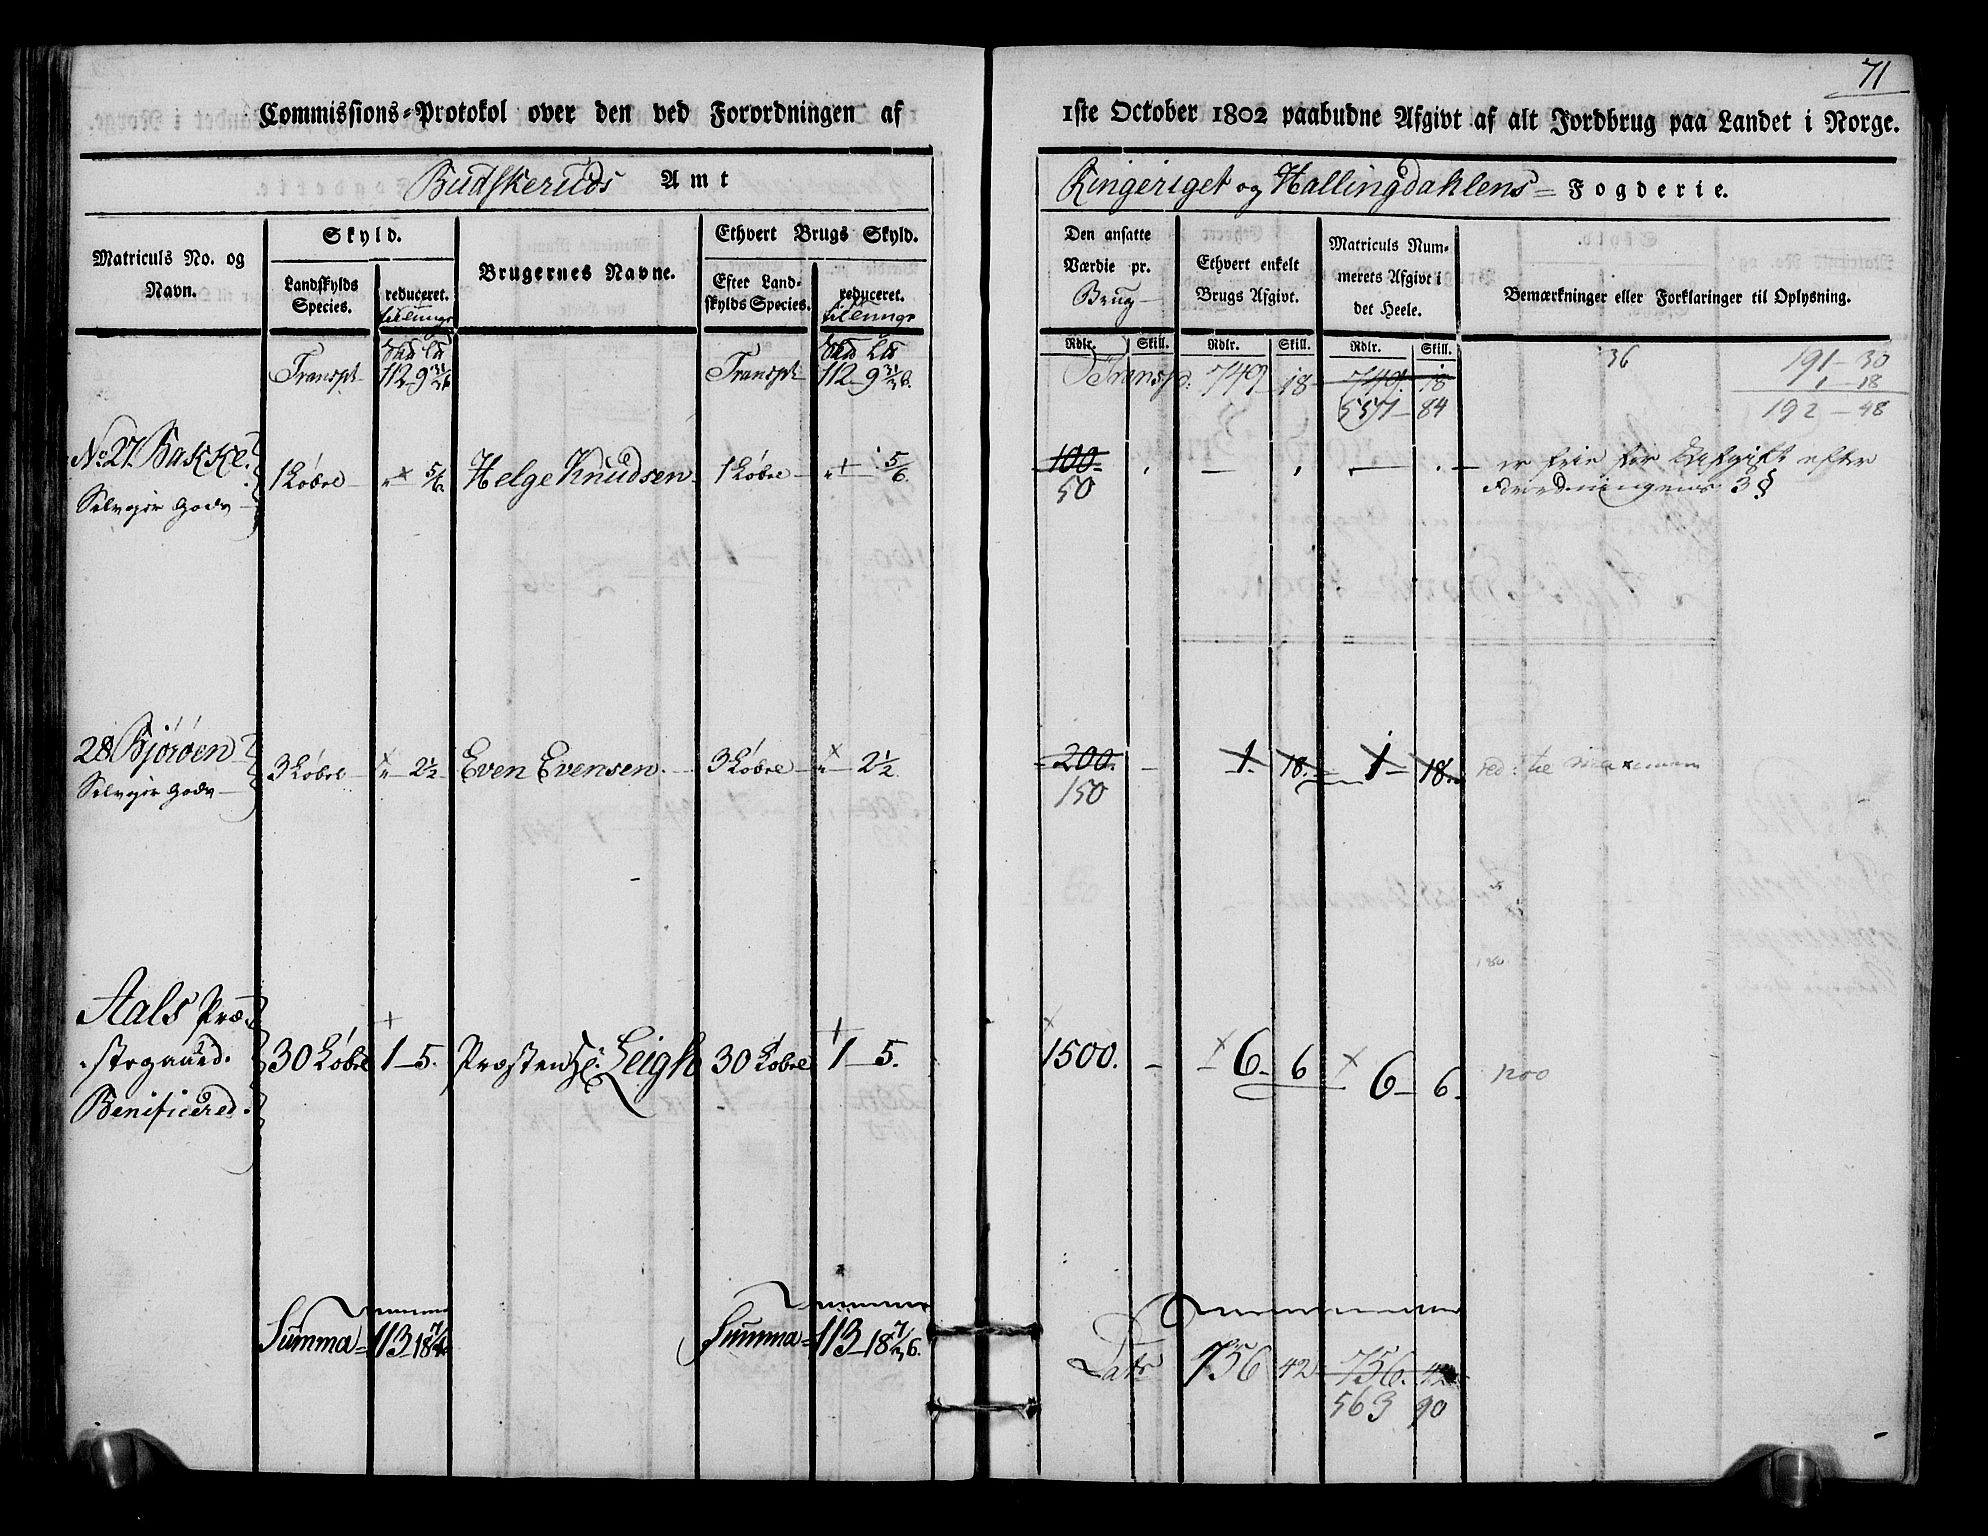 71
Commissions-Protokol over den ved Forordningen af 1ste October 1802 paabudne Afgivt af alt Jordbrug paa Landet i Norge.
Budskeruds Amt
Ringeriget og Hallingdahlens Fogderie.
Matriculs No. og Navn.
Skyld.
Landskylds Species.
reduceret.
Brugernes Navne.
Ethvert Brugs Skyld.
Efter Landskylds Species.
reduceret.
Den ansatte Værdie pr. Brug
Ethvert enkelt Brugs Afgivt.
Matriculs Nummerets Afgivt i det Heele.
Bemærkninger eller Forklaringer til Oplysning.
Rdlr. Skill. Rdlr. Skill. Rdlr. Skill.
Transpt 112 9 31/36 Transpt 112 9 31/36 Transpt. 749 18 749 18 36 191-30
1-18
557-84 192-48
No 27. Bakke. 1 Løbre 5/6 Helge Knudsen 1 Løbre 5/6 100 er frie for Udgift efter
Selvejer Gods 50 Forordningens 3 §
28 Bjøroen 3 Løbre 2½ Even Evensen. 3 Løbre 2½ 200. 1. 18. 1 18. red: til Maximum
Selvejer Gods 150
180
Aals Præ-
stegaard. 30 Løbre 1-5. Præsten Leigh 30 Løbre 1-5. 1500. 6 6 6 6 1200
Benificered.
Summa 113 18 7/36 Summa 113 18 7/36. Latr 756 42 756. 42
563 90